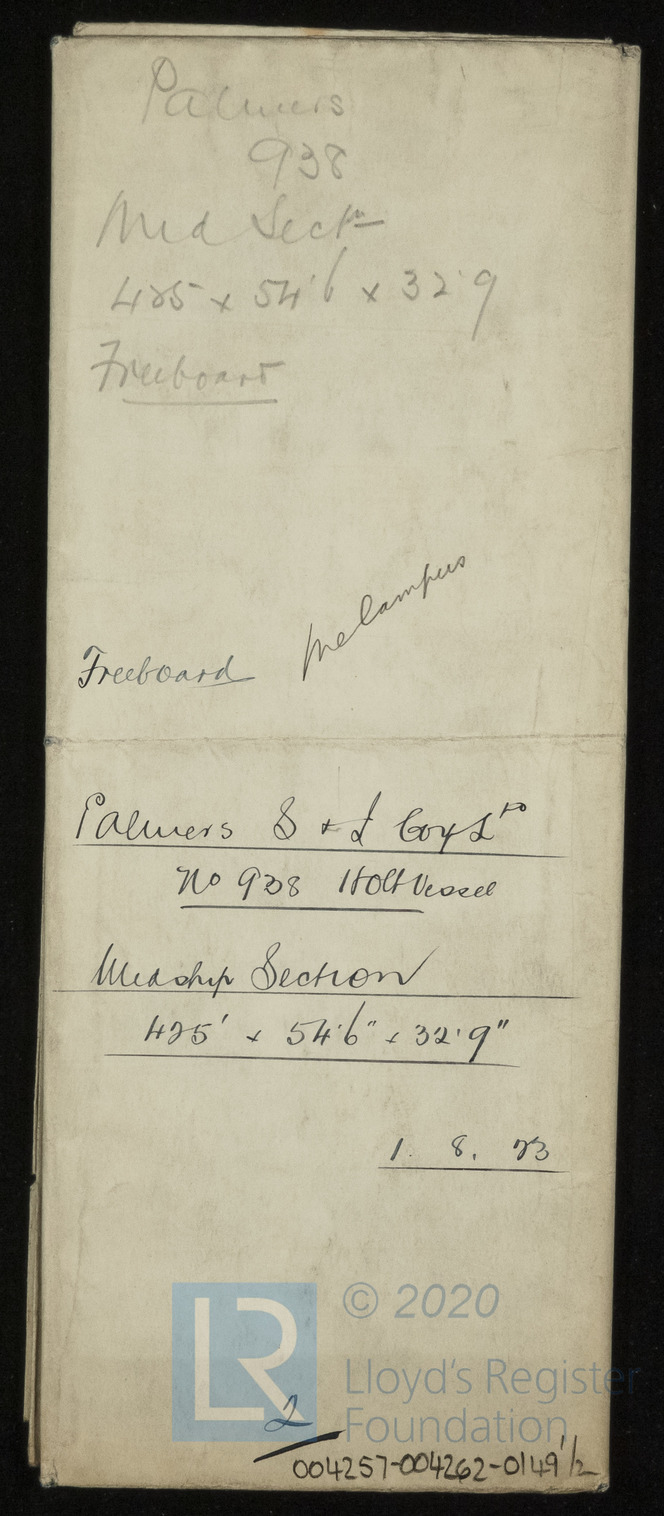 Palmers
938
Mid Sectn
425 x 54'6 x 32'9
Freeboard
Melampus
Freeboard
Palmers S & I Coy Ld
No 938 Holt Vessel
Midship Section
425' x 54'6" x 32'9"
1. 8. 23
© 2020
LR
Lloyd's Register
Foundation
2
004257-004262-0149 1/2